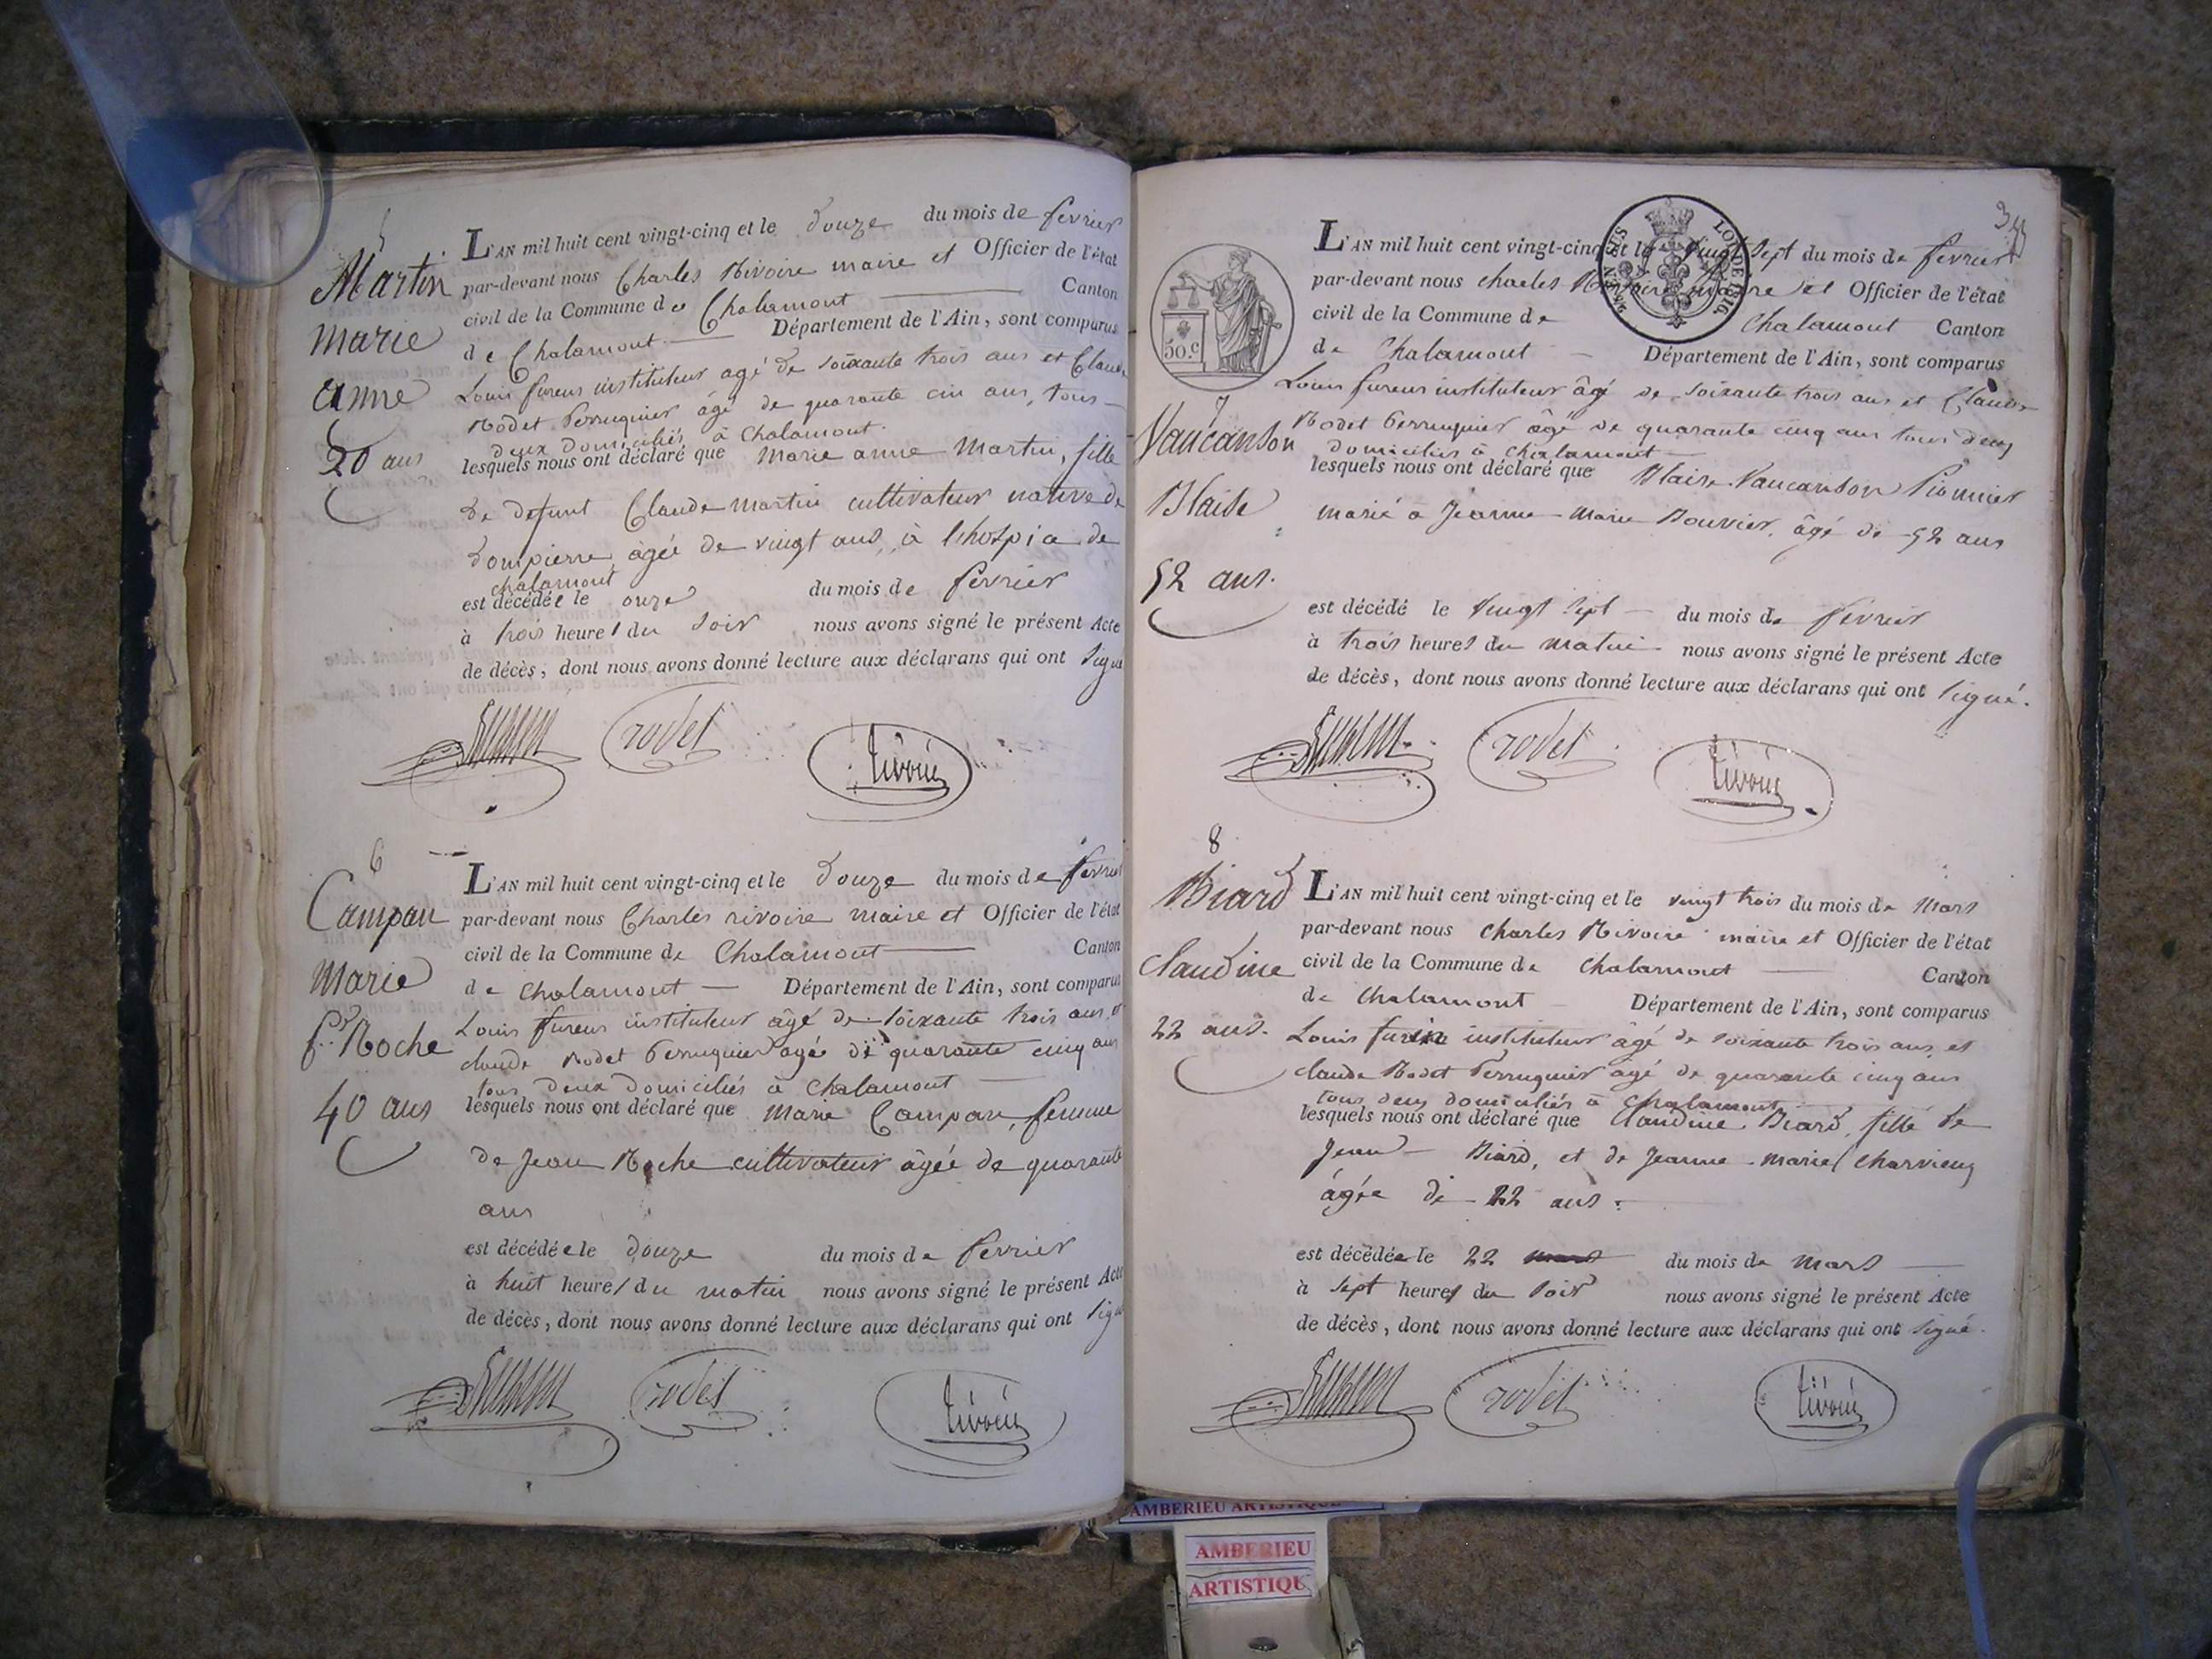 5
Martin
marie
anne
20 ans
L'AN mil huit cent vingt-cinq et le douze du mois de fevrier
par-devant nous Charles Rivoire maire et Officier de l'état
civil de la Commune de Chalamont Canton
de Chalamont Département de l'Ain, sont comparus
Louis fureus instituteur agé de soixante trois ans et Claude
Rodet Perruquier âgé de quarante cin ans, tous
deux domiciliés à Chalamont.
lesquels nous ont déclaré que Marie anne Martin, fille
de defunt Claude Martin cultivateur native de
Dompierre, agée de vingt ans, à l'hospia de
chalamont
est décédée le onze du mois de fevrier
à trois heures du soir nous avons signé le présent Acte
de décès, dont nous avons donné lecture aux déclarans qui ont signé
rodet rivoire
6
Campan
Marie
f.e Roche
40 ans
L'AN mil huit cent vingt-cinq et le douze du mois de fevrier
par-devant nous Charles rivoire maire et Officier de l'état
civil de la Commune de Chalamont Canton
de Chalamont Département de l'Ain, sont comparus
Louis fureus instituteur âgé de soixante trois ans et
claude Rodet Perruquier agé de quarante cinq ans
tous deux domiciliés à Chalamont
lesquels nous ont déclaré que Marie Campan, femme
de Jean Roche cultivateur âgée de quarante
ans
est décédée le douze du mois de fevrier
à huit heures du matin nous avons signé le présent Acte
de décès, dont nous avons donné lecture aux déclarans qui ont signé
rodet rivoire
50.c
LOI DE 1816
7
Vaucanson
Blaise
52 ans.
L'AN mil huit cent vingt-cinq et le vingt sept du mois de fevrier
par-devant nous charles Rivoire maire et Officier de l'état
civil de la Commune de Chalamont Canton
de Chalamont Département de l'Ain, sont comparus
Louis fureus instituteur âgé de soixante trois ans et Claude
Rodet Perruquier âgé de quarante cinq ans tous deux
domiciliés à Chalamont
lesquels nous ont déclaré que Blaise Vaucanson Pionnier
marié a Jeanne-Marie Bouvier, âgé de 52 ans
est décédé le vingt sept du mois de fevrier
à trois heures du matin nous avons signé le présent Acte
de décès, dont nous avons donné lecture aux déclarans qui ont signé.
rodet rivoire
8
Biard
Claudine
22 ans.
L'AN mil huit cent vingt-cinq et le vingt trois du mois de Mars
par-devant nous Charles Rivoire maire et Officier de l'état
civil de la Commune de Chalamont Canton
de Chalamont Département de l'Ain, sont comparus
Louis instituteur âgé de soixante trois ans et
claude Rodet Perruquier agé de quarante cinq ans
tous deux domiciliés à Chalamont
lesquels nous ont déclaré que Claudine Biard, fille de
Jean Biard, et de Jeanne-Marie Charvieux
âgée de 22 ans.
est décédée le 22 du mois de Mars
à sept heures du soir nous avons signé le présent Acte
de décès, dont nous avons donné lecture aux déclarans qui ont signé.
rodet rivoire
AMBERIEU ARTISTIQUE
AMBERIEU
ARTISTIQU